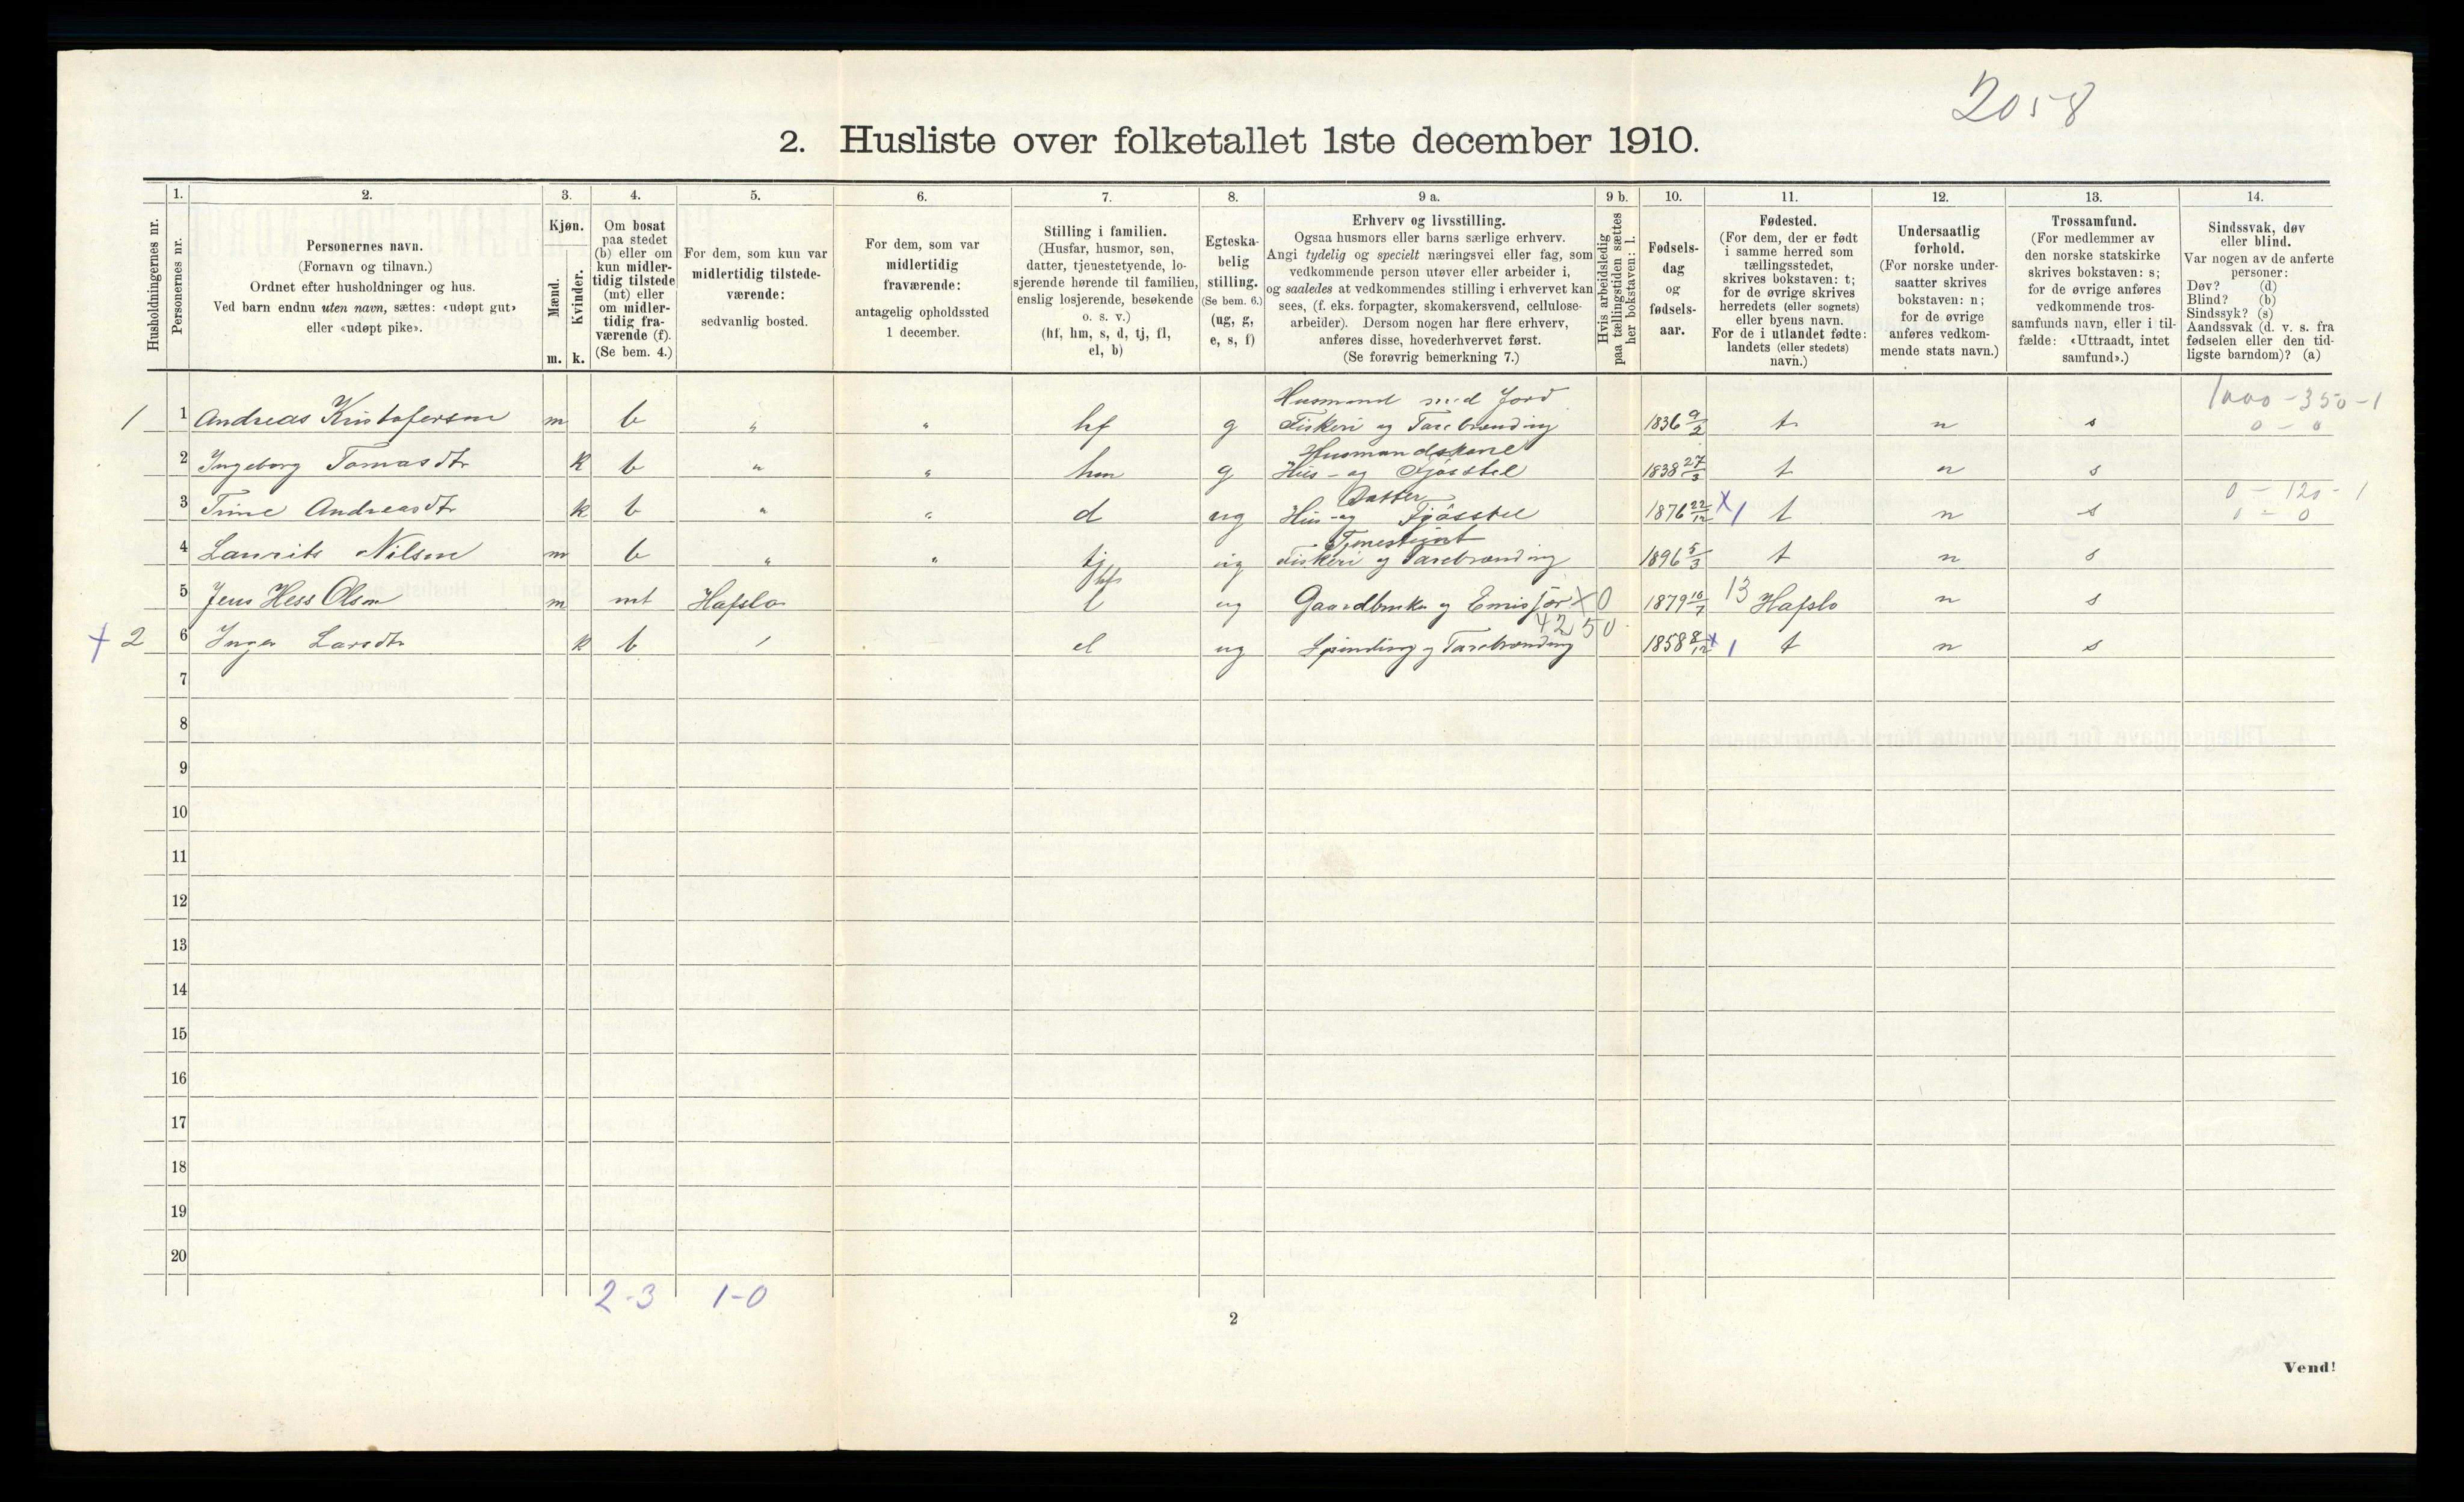 2058
2. Husliste over folketallet 1ste december 1910.
Husholdningernes nr.
1. Personernes nr.
2. Personernes navn.
(Fornavn og tilnavn.)
Ordnet efter husholdninger og hus.
Ved barn endnu uten navn, sættes: «udøpt gut»
eller «udøpt pike».
3. Kjøn.
Mænd. m.
Kvinder. k.
4. Om bosat
paa stedet
(b) eller om
kun midler-
tidig tilstede
(mt) eller
om midler-
tidig fra-
værende (f).
(Se bem. 4.)
5. For dem, som kun var
midlertidig tilstede-
værende:
sedvanlig bosted.
6. For dem, som var
midlertidig
fraværende:
antagelig opholdssted
1 december.
7. Stilling i familien.
(Husfar, husmor, søn,
datter, tjenestetyende, lo-
sjerende hørende til familien,
enslig losjerende, besøkende
o. s. v.)
(hf, hm, s, d, tj, fl,
el, b)
8. Egteska-
belig
stilling.
(Se bem. 6.)
(ug, g,
e, s, f)
9 a. Erhverv og livsstilling.
Ogsaa husmors eller barns særlige erhverv.
Angi tydelig og specielt næringsvei eller fag, som
vedkommende person utøver eller arbeider i,
og saaledes at vedkommendes stilling i erhvervet kan
sees, (f. eks. forpagter, skomakersvend, cellulose-
arbeider). Dersom nogen har flere erhverv,
anføres disse, hovederhvervet først.
(Se forøvrig bemerkning 7.)
9 b. Hvis arbeidsledig
paa tællingstiden sættes
her bokstaven: l.
10. Fødsels-
dag
og
fødsels-
aar.
11. Fødested.
(For dem, der er født
i samme herred som
tællingsstedet,
skrives bokstaven: t;
for de øvrige skrives
herredets (eller sognets)
eller byens navn.
For de i utlandet fødte:
landets (eller stedets)
navn.)
12. Undersaatlig
forhold.
(For norske under-
saatter skrives
bokstaven: n;
for de øvrige
anføres vedkom-
mende stats navn.)
13. Trossamfund.
(For medlemmer av
den norske statskirke
skrives bokstaven: s;
for de øvrige anføres
vedkommende tros-
samfunds navn, eller i til-
fælde: «Uttraadt, intet
samfund».)
14. Sindssvak, døv
eller blind.
Var nogen av de anførte
personer:
Døv? (d)
Blind? (b)
Sindssyk? (s)
Aandssvak (d. v. s. fra
fødselen eller den tid-
ligste barndom)? (a)
Husmand med Jord 1000-350-1
1 1 Andreas Kristofersen m b " " hf g Fiskeri og Tarebrænding 1836 9/2 t n s 0-0
Husmandskone
2 Ingeborg Tomasdtr k b " " hm g Hus- og Fjøsstel 1838 27/3 t n s
Datter 0-120-1
3 Trine Andreasdtr k b " " d ug Hus- og Fjøsstel 1876 22/12 x 1 t n s 0-0
Tjenestejent
4 Laurits Nilsen m b " " tj ug Fiskeri og Tarebrænding 1896 5/3 t n s
5 Jens Hess Olsen m mt Hafslo ug Gaardbruker og x0 1879 10/7 13 Hafslo n s
4250
+ 2 6 Inger Larsdtr k b el ug Spinding og Tarebrænding 1858 8/12 x 1 t n s
7
8
9
10
11
12
13
14
15
16
17
18
19
20
2-3 1-0
2
Vend!